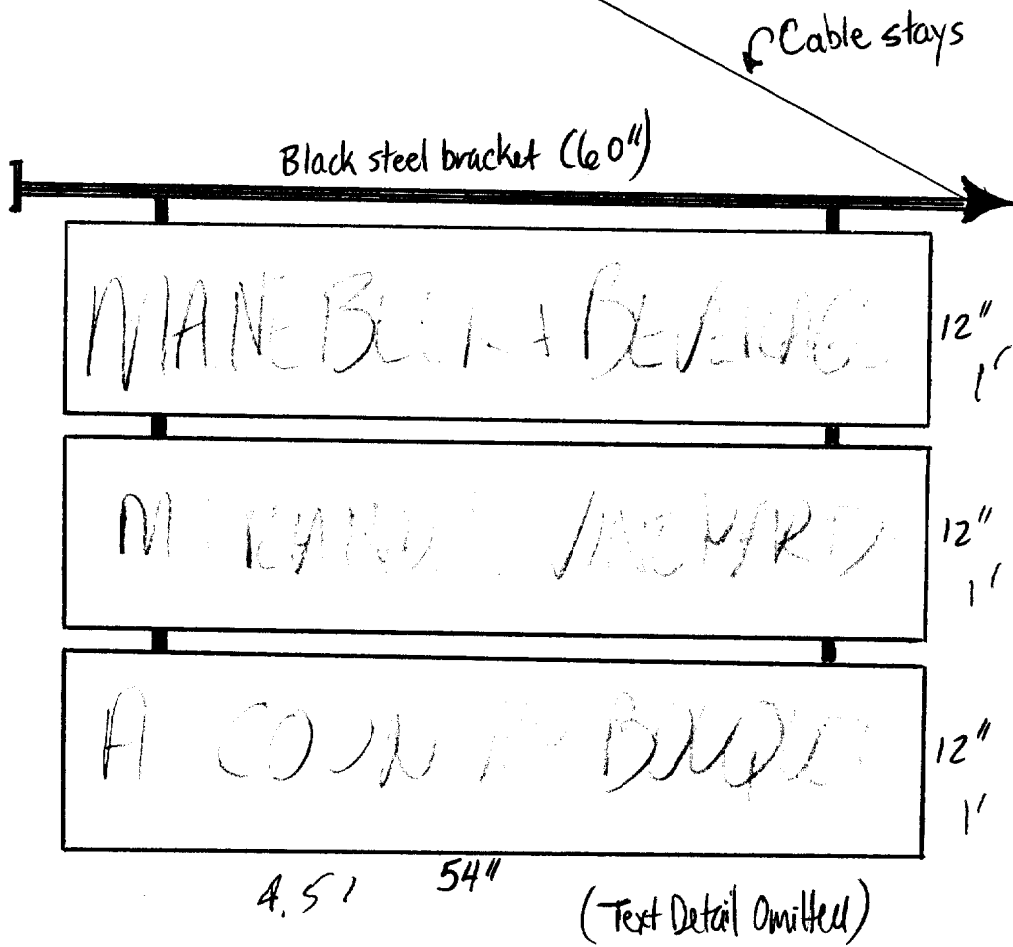 Cable stays
Black steel bracket (60")
MAINE BEER + BEVERAGE
12"
1'
VINEYARD
12"
1'
A COUNTRY BOUQUET
12"
1'
4.5' 54"
(Text Detail Omitted)